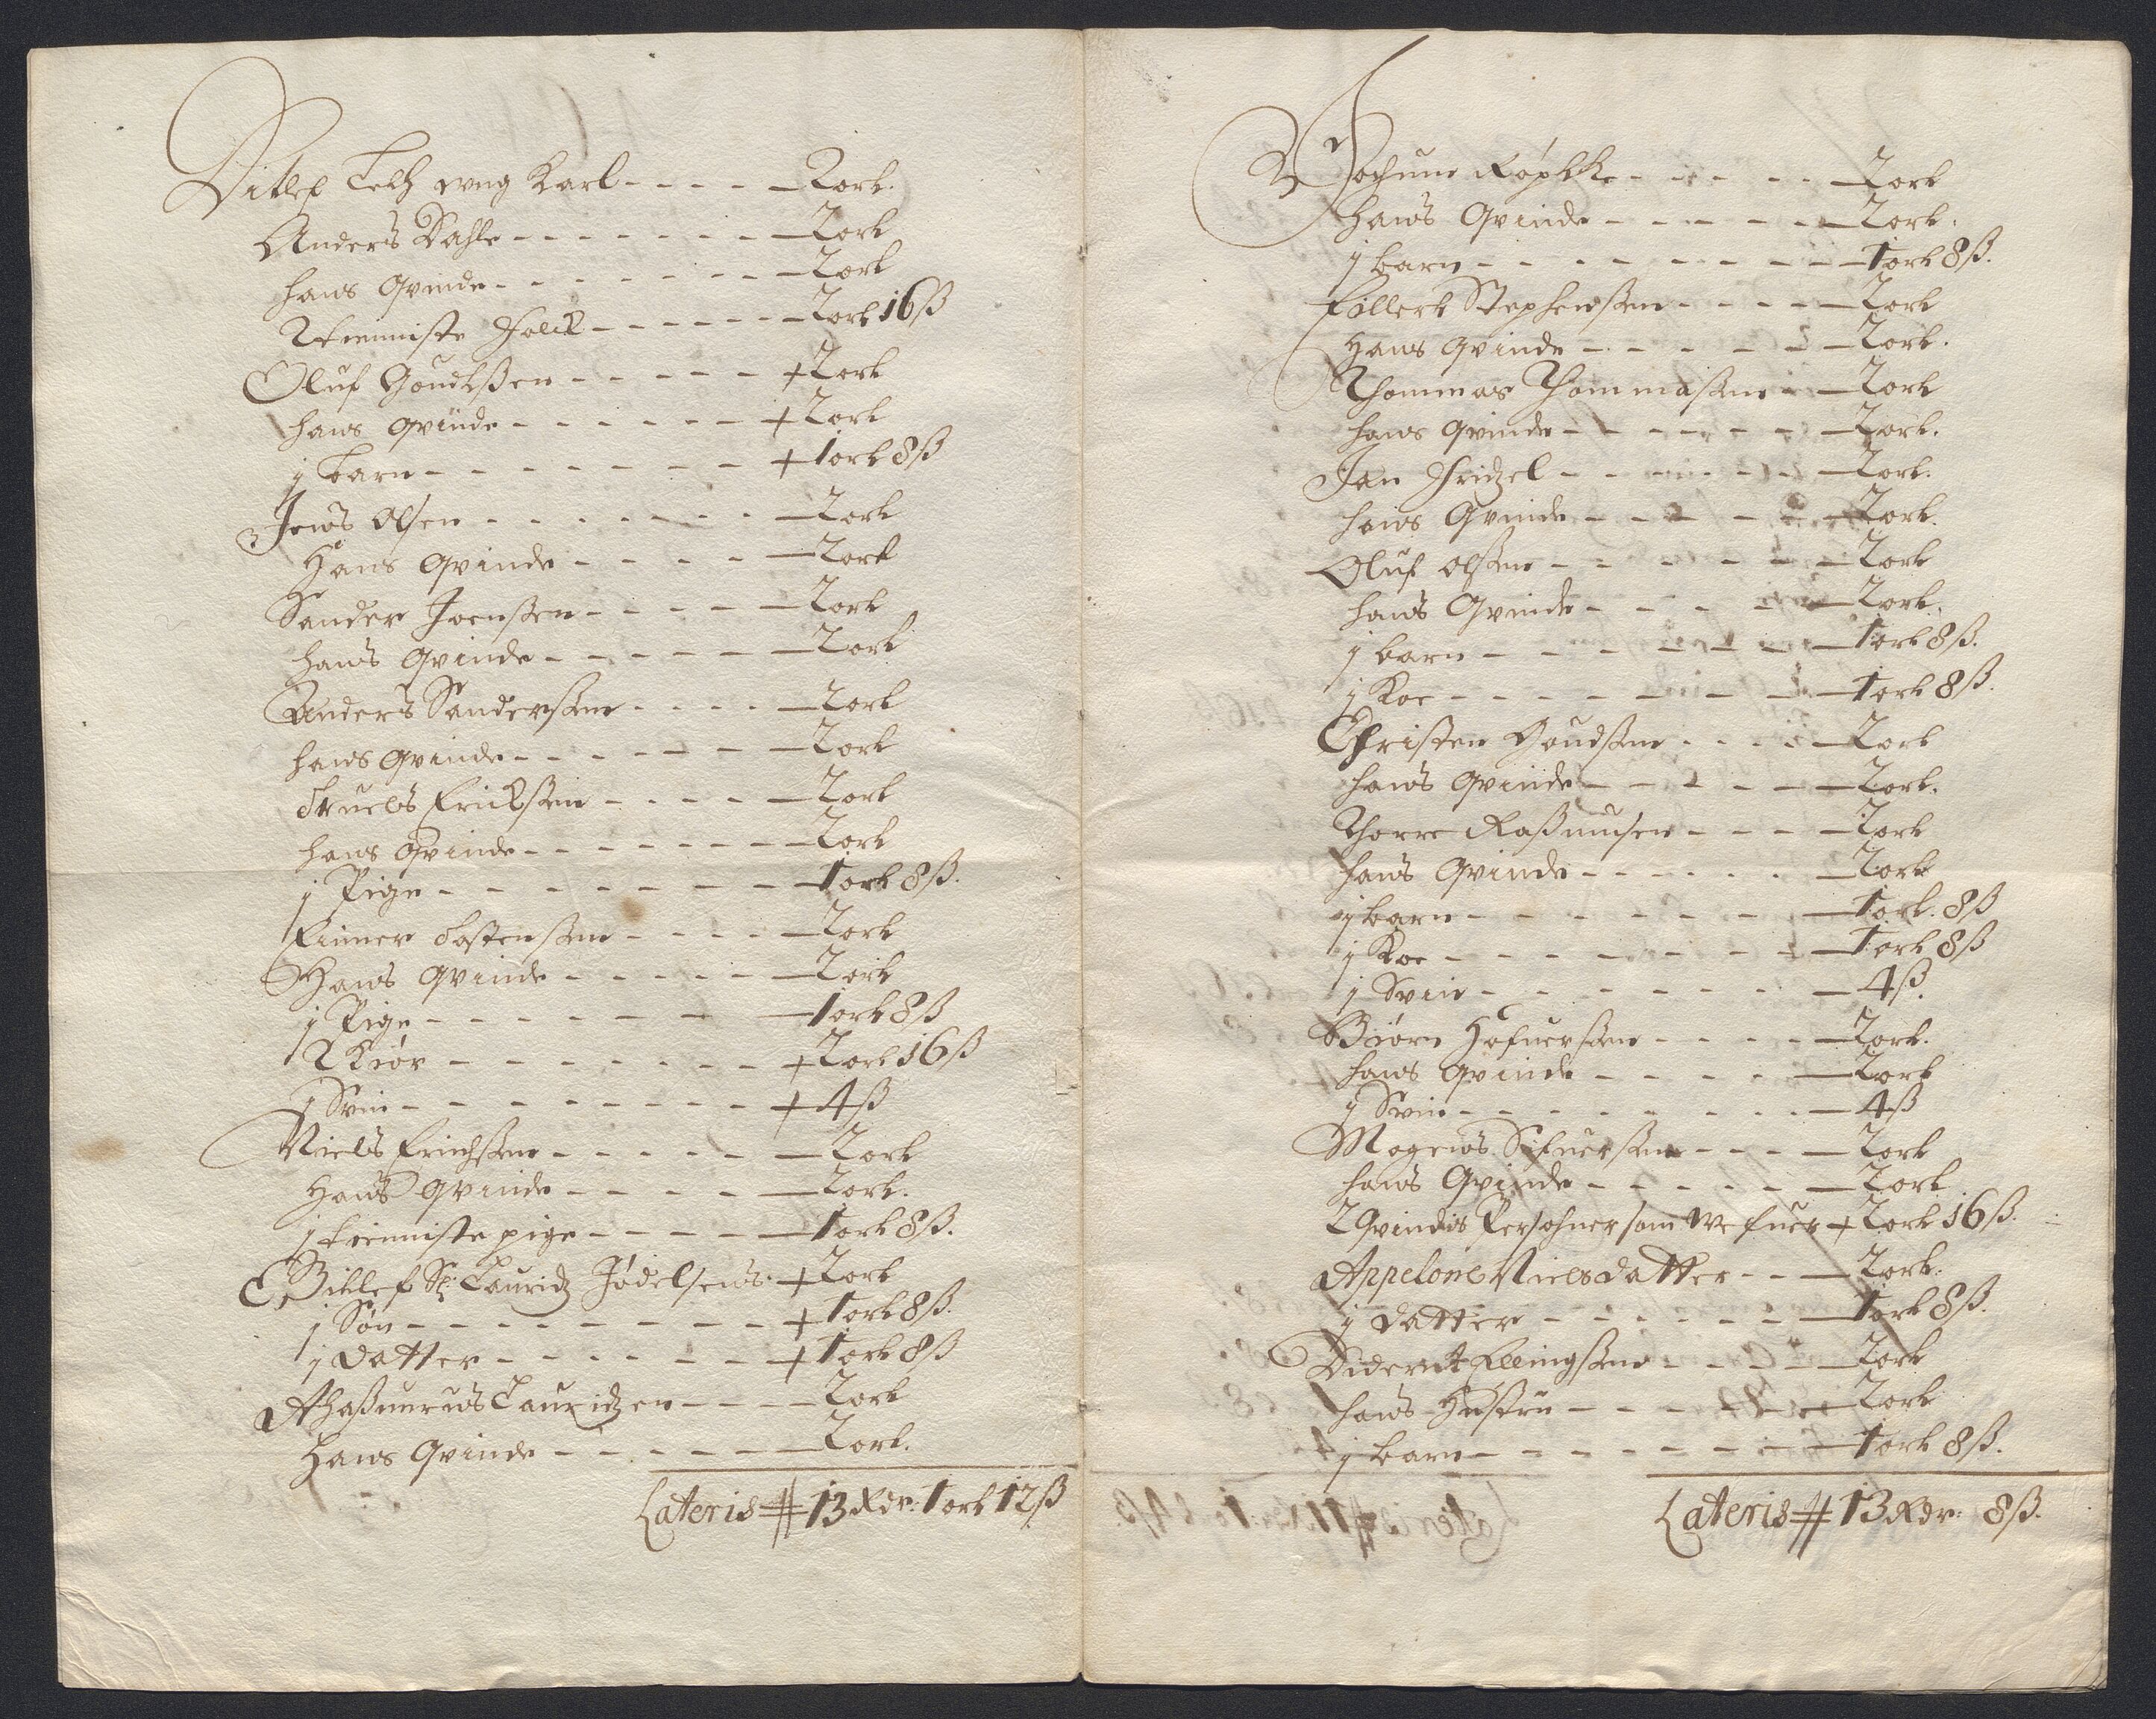 Ditlef Lelh ung Karl - - - - 2 ort.
Anders Dahle - - - - - - - 2 ort
hans Qvinde - - - - - - - 2 ort
2 tienniste Folck - - - - - - 2 ort 16 ß
Oluf Goudtßen - - - - - + 2 ort
hans Qvinde - - - - - - + 2 ort
j barn - - - - - - - - + 1 ort 8 ß
Jens Olsen - - - - - - - 2 ort
Hans Qvinde - - - - - 2 ort
Sander Joenßen - - - - - 2 ort
hans Qvinde - - - - - - 2 ort
Anders Sanderßen - - - - 2 ort
hans Qvinde - - - - - - 2 ort
Truels Erickßen - - - - - 2 ort
hans Qvinde - - - - - - - 2 ort
j Pige - - - - - - - - 1 ort 8 ß.
Einer Tostenßen - - - - 2 ort
Hans Qvinde - - - - - 2 ort
j Pige - - - - - - - - 1 ort 8 ß
2 Kiør - - - - - - - + 2 ort 16 ß
j Svin - - - - - - - - + 4 ß
Niels Erichßen - - - - - - 2 ort
Hans Qvinde - - - - - 2 ort.
j tienniste pige - - - - - 1 ort 8 ß.
Sl: Lauridz Jødelsens + 2 ort
j Søn - - - - - - - - + 1 ort 8 ß.
j datter - - - - - - - + 1 ort 8 ß
Ahaßuerus Lauridzen - - - - 2 ort
Hans Qvinde - - - - - - 2 ort.
Lateris # 13 Rdr: 1 ort 12 ß
Jochum Røpkke - - - - - 2 ort
hans Qvinde - - - - - - 2 ort.
j barn - - - - - - - - 1 ort 8 ß.
Eillert Stephenßen - - - - 2 ort
Hans Qvinde - - - - - 2 ort.
Thommas Thommaßen - - 2 ort
hans Qvinde - - - - - - 2 ort.
Jan Fridzel - - - - - - 2 ort.
hans Qvinde - - - - - 2 ort.
Oluf Olßen - - - - - - 2 ort
hans Qvinde - - - - - 2 ort.
j barn - - - - - - - 1 ort 8 ß.
j Koe - - - - - - - - 1 ort 8 ß.
Christen Goudßen - - - - 2 ort
hans Qvinde - - - - - - 2 ort.
Thorre Raßmusen - - - - 2 ort
hans Qvinde - - - - - - 2 ort
j barn - - - - - - - 1 ort. 8 ß
j Koe - - - - - - - - 1 ort 8 ß
j Svin - - - - - - - 4 ß.
Biørn Hofuerßen - - - - 2 ort.
hans Qvinde - - - - - 2 ort
j Svin - - - - - - - - 4 ß
Mogens Sifuerßen - - - - 2 ort
hans Qvinde - - - - - - 2 ort
2 Qvindis Persohner som Wefuer + 2 ort 16 ß.
Appelone Nielsdatter - - - 2 ort.
j datter - - - - - - - 1 ort 8 ß.
Ellingßen - - - - 2 ort
hans Hustru - - - - - - 2 ort
j barn - - - - - - - 1 ort 8 ß.
Lateris # 13 Rdr: 8 ß.